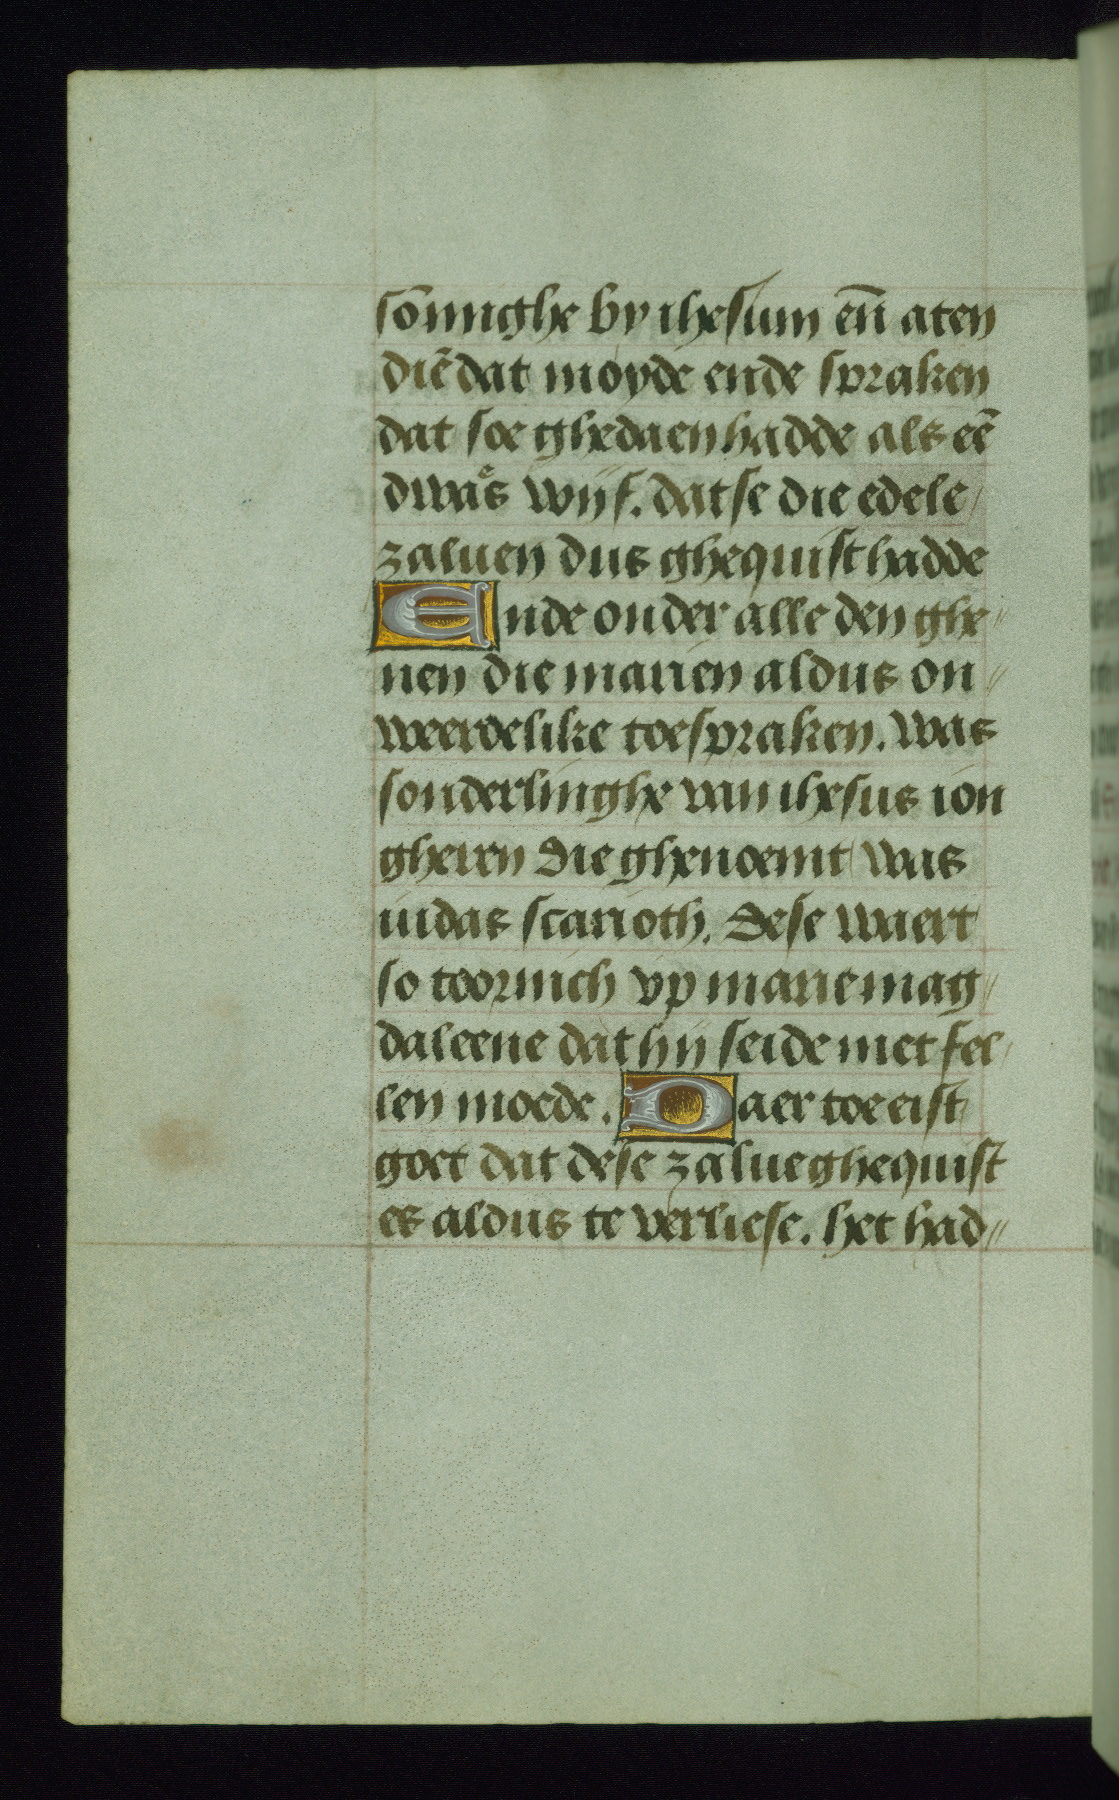 sōmighe by ihesum en̄ aten
diē dat moyde ende spraken
dat soe ghedaen hadde als eē
dwaes wijf. dat se die edele
zaluen dus ghequist hadde
Ende onder alle den ghe-
nen die marien aldus on-
weerdelike toespraken. was
sonderlinghe van ihesus ion
gheren die ghenoemt was
iudas scarioth. Dese waert
so toornich vp marie mag-
daleene dat hij seide met fel-
len moede. Daer toe eist
goet dat dese zalue ghequist
es aldus te verliese. het had-